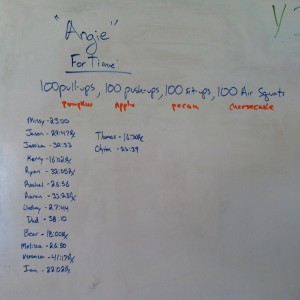 "Angie"
For Time:
100 pull-ups, 100 push-ups, 100 sit-ups, 100 Air Squats
Pumpkin Apple pecan cheesecake
Missy - 25:00
Jason - 29:47 Rx
Jessica - 30:33
Kerry - 16:12 Rx
Ryan - 32:05 Rx
Rachel - 26:56
Aaron - 33:28 Rx
Lindsay - 27:44
Dad - 38:10
Bear - 18:00 Rx
Melissa - 26:30
Veronica - 41:17 Rx
Ian - 22:02 Rx
Thomas - 16:30 Rx
23:39